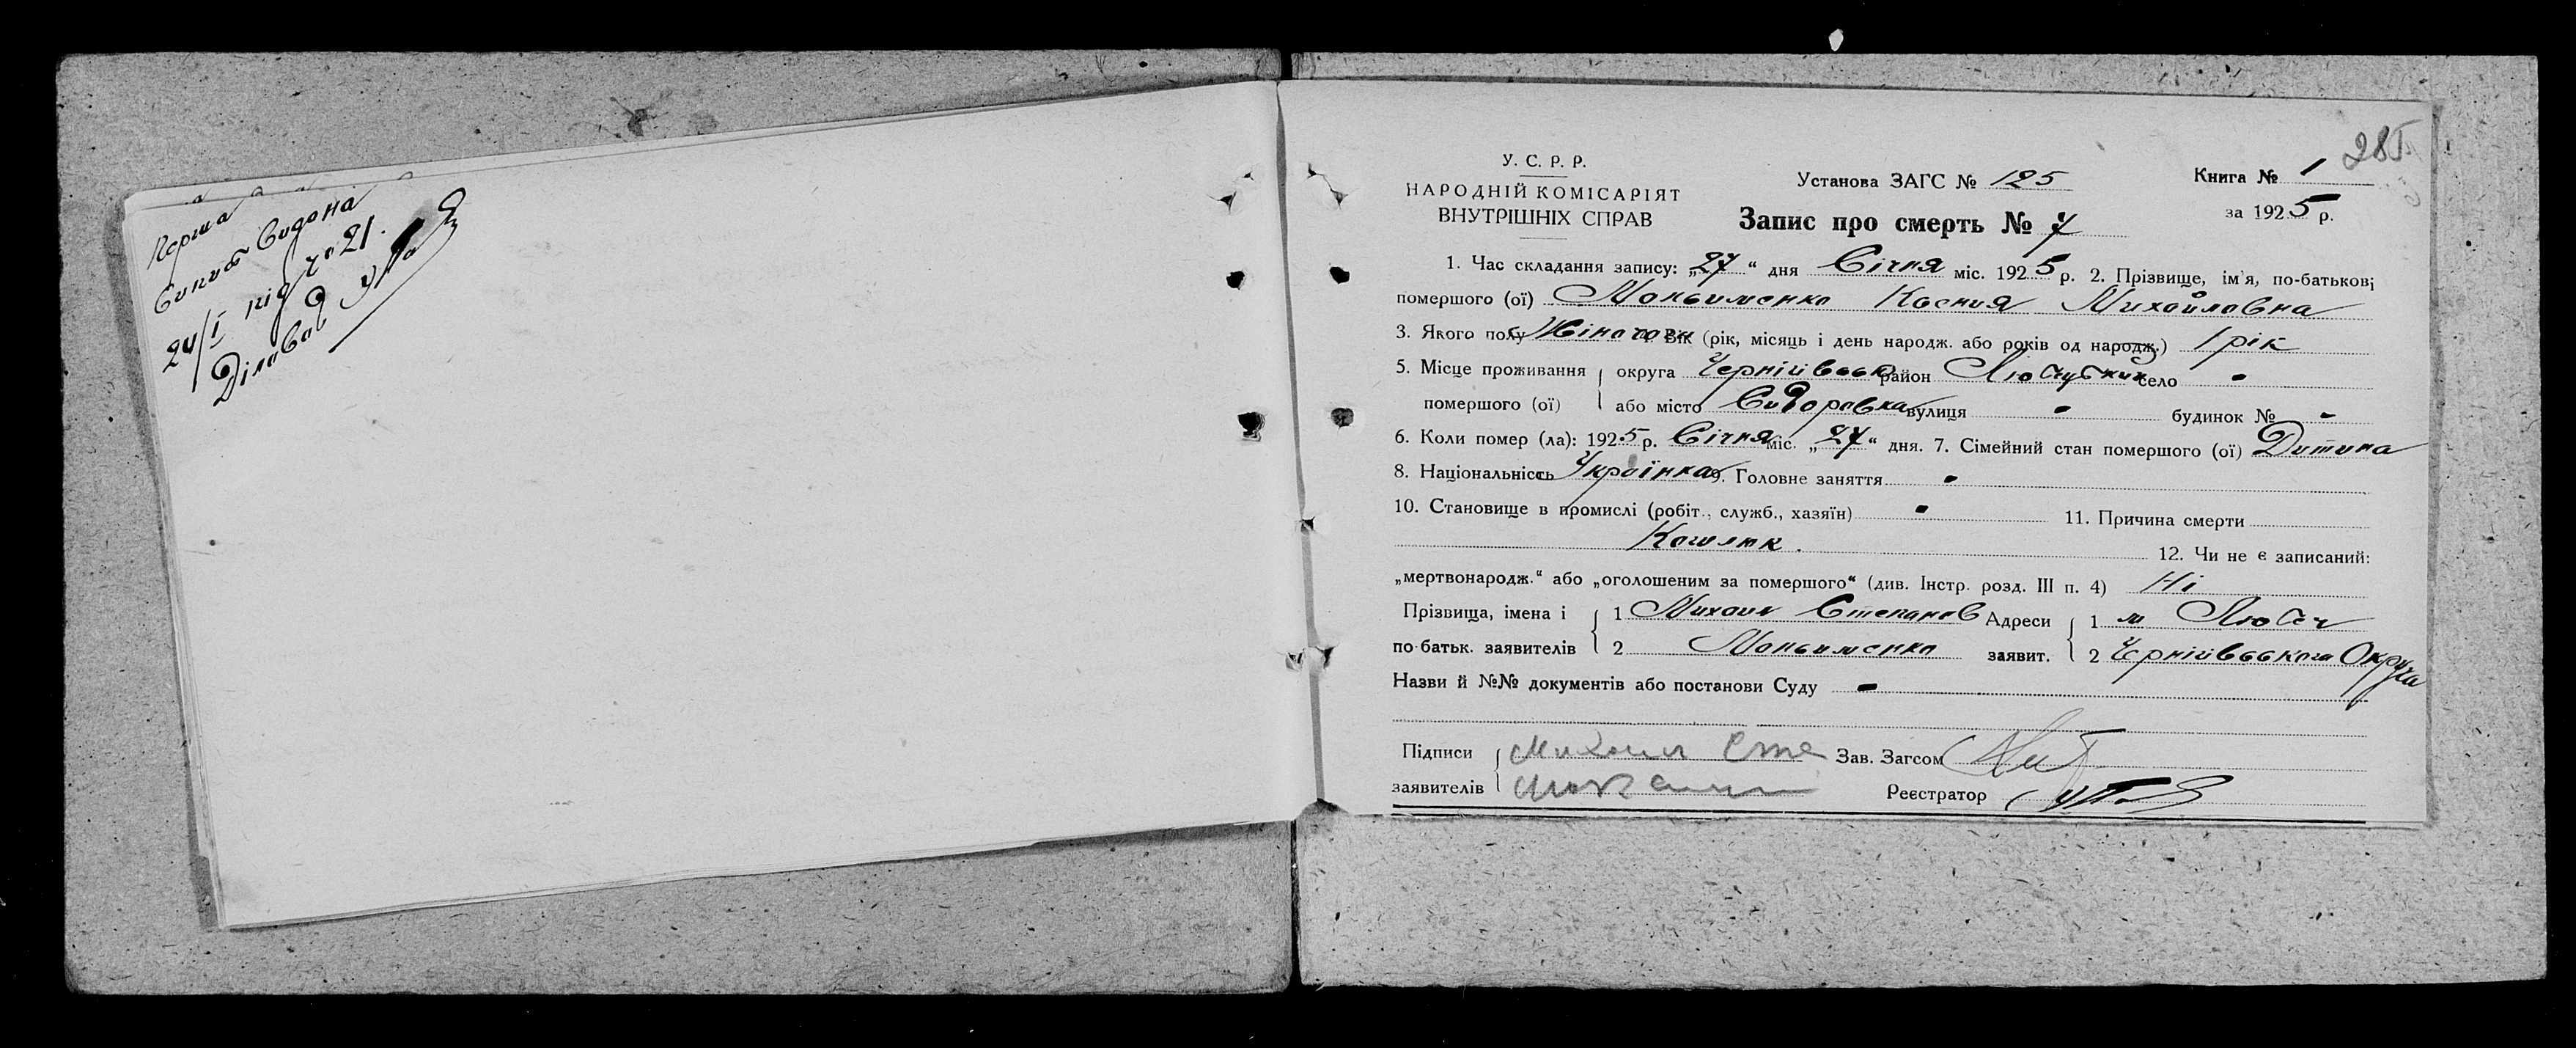 Перша
Копія Видана
24/I під № 21.
Діловод
28
У. С. Р. Р.
НАРОДНІЙ КОМІСАРІЯТ
ВНУТРІШНІХ СПРАВ
Установа ЗАГС № 125
Книга № 1
за 1925 р.
Запис про смерть № 7
1. Час складання запису: „27“ дня Січня міс. 1925 р. 2. Прізвище, ім'я, по-батькові
помершого (ої) Максименко Ксения Михайловна
3. Якого полу Жіночого 4. Вік (рік, місяць і день народж. або років од народж.) 1 рік
5. Місце проживання округа Чернігівськ район Любецький село -
помершого (ої) або місто Сидоровка вулиця - будинок № -
6. Коли помер (ла): 1925 р. Січня міс. „27“ дня. 7. Сімейний стан помершого (ої) Дитина
8. Національність Українка 9. Головне заняття -
10. Становище в промислі (робіт., служб., хазяїн) - 11. Причина смерти
Кашлюк. 12. Чи не є записаний:
„мертвонародж.“ або „оголошеним за помершого“ (див. Інстр. розд. III п. 4) Ні
Прізвища, імена і 1 Михаил Степанов Адреси 1 м Любеч
по батьк. заявителів 2 Максименко заявит. 2 Чернігівського Округа
Назви й №№ документів або постанови Суду -
Підписи Михаил Сте Зав. Загсом
заявителів Реєстратор